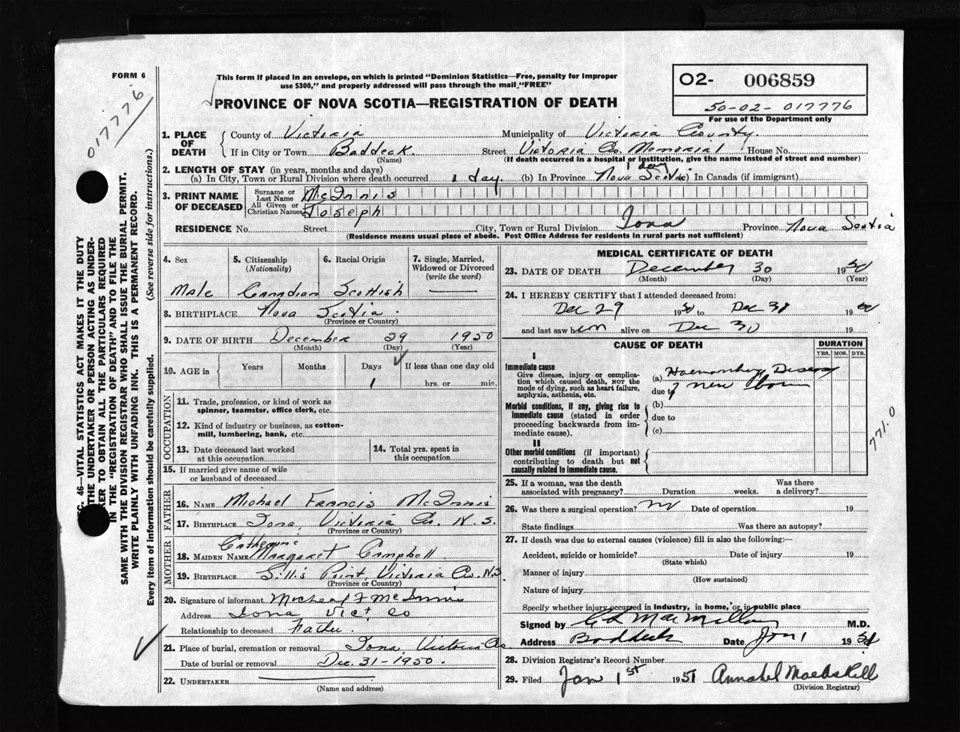 FORM 6
017776
This form if placed in an envelope, on which is printed "Dominion Statistics—Free, penalty for improper
use $300," and properly addressed will pass through the mail, "FREE"
PROVINCE OF NOVA SCOTIA—REGISTRATION OF DEATH
O2- 006859
50-02-017776
For use of the Department only
SEC. 46—VITAL STATISTICS ACT MAKES IT THE DUTY
THE UNDERTAKER OR PERSON ACTING AS UNDER-
KER TO OBTAIN ALL THE PARTICULARS REQUIRED
IN THE "REGISTRATION OF DEATH" AND TO FILE THE
SAME WITH THE DIVISION REGISTRAR WHO SHALL ISSUE THE BURIAL PERMIT.
WRITE PLAINLY WITH UNFADING INK. THIS IS A PERMANENT RECORD.
Every item of information should be carefully supplied. (See reverse side for instructions.)
1. PLACE OF DEATH County of Victoria Municipality of Victoria County.
If in City or Town Baddeck. Street Victoria Co. Memorial House No.
(Name) (If death occurred in a hospital or institution, give the name instead of street and number)
2. LENGTH OF STAY (in years, months and days) 1 day
(a) In City, Town or Rural Division where death occurred 1 day. (b) In Province Nova Scotia (c) In Canada (if immigrant)
3. PRINT NAME OF DECEASED Surname or Last Name McInnis
All Given or Christian Names Joseph
RESIDENCE No. Street City, Town or Rural Division Iona Province Nova Scotia
(Residence means usual place of abode. Post Office Address for residents in rural parts not sufficient.)
4. Sex 5. Citizenship (Nationality) 6. Racial Origin 7. Single, Married, Widowed or Divorced (write the word)
Male Canadian Scottish
8. BIRTHPLACE Nova Scotia.
(Province or Country)
9. DATE OF BIRTH December 29 1950
(Month) (Day) (Year)
10. AGE in Years Months Days If less than one day old
1 hrs. or min.
OCCUPATION
11. Trade, profession, or kind of work as
spinner, teamster, office clerk, etc.
12. Kind of industry or business, as cotton-
mill, lumbering, bank, etc.
13. Date deceased last worked at this occupation 14. Total yrs. spent in this occupation
15. If married give name of wife
or husband of deceased
FATHER
16. NAME Michael Francis McInnis
17. BIRTHPLACE Iona, Victoria Co. N.S.
(Province or Country)
MOTHER
Catherine
18. MAIDEN NAME Margaret Campbell
19. BIRTHPLACE Gillis Point, Victoria Co. N.S.
(Province or Country)
20. Signature of informant Micheal F McInnis
Address Iona Vict Co
Relationship to deceased Father
21. Place of burial, cremation or removal Iona, Victoria Co
Date of burial or removal Dec. 31-1950.
22. UNDERTAKER
(Name and address)
MEDICAL CERTIFICATE OF DEATH
23. DATE OF DEATH December 30 1950
(Month) (Day) (Year)
24. I HEREBY CERTIFY that I attended deceased from:
Dec 29 1950 to Dec 30 1950
and last saw him alive on Dec 30 1950
CAUSE OF DEATH DURATION
YRS. MOS. DYS.
I
Immediate cause
Give disease, injury or complication which caused death, NOT the mode of dying, such as heart failure, asphyxia, asthenia, etc.
(a) Haemorrhagic Disease
due to new born
Morbid conditions, if any, giving rise to immediate cause (stated in order proceeding backwards from immediate cause).
(b)
due to
(c)
II
Other morbid conditions (if important) contributing to death but not causally related to immediate cause.
771.0
25. If a woman, was the death associated with pregnancy? Duration weeks. Was there a delivery?
26. Was there a surgical operation? no Date of operation 19
State findings Was there an autopsy?
27. If death was due to external causes (violence) fill in also the following:—
Accident, suicide or homicide? Date of injury 19
(State which)
Manner of injury
(How sustained)
Nature of injury
Specify whether injury occurred in industry, in home, or in public place
Signed by MacMillan M.D.
Address Baddeck Date Jan 1 1951
28. Division Registrar's Record Number
29. Filed Jan 1st 1951 Annabel MacAskill
(Division Registrar)